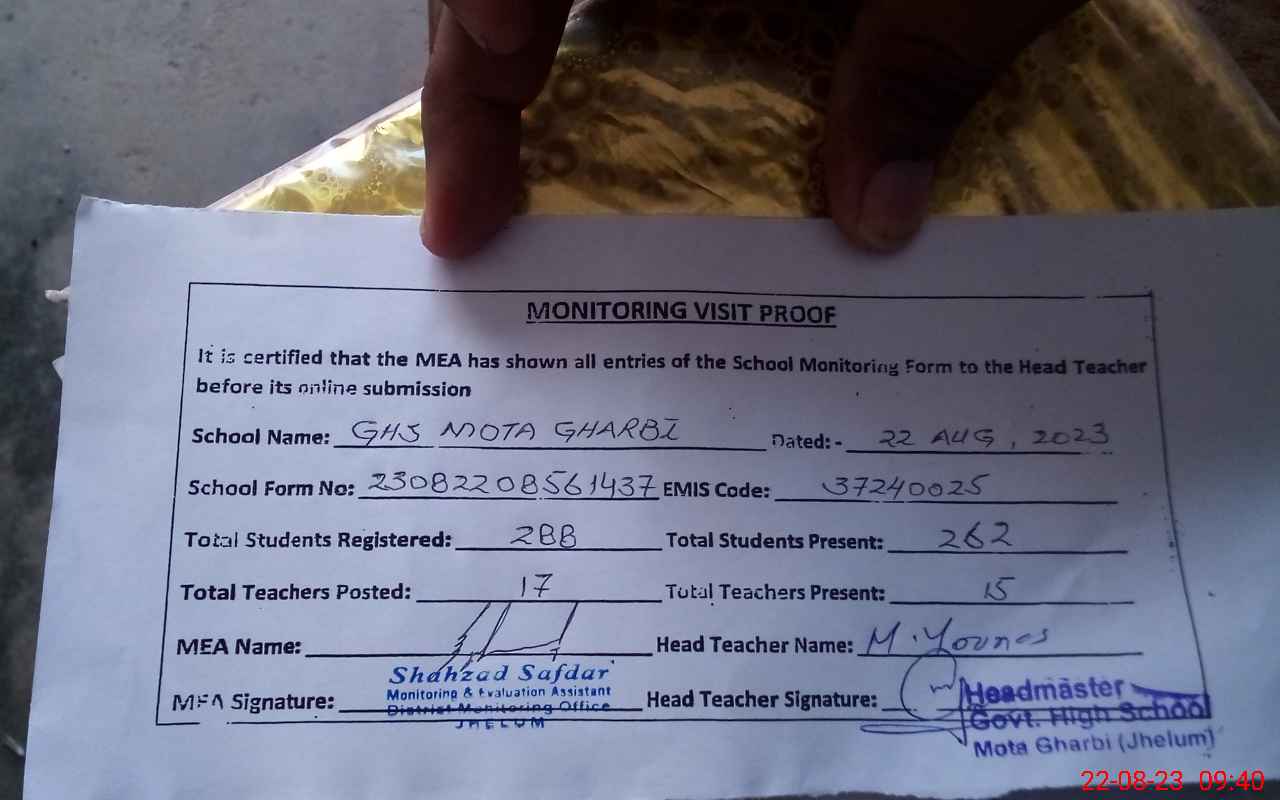 MONITORING VISIT PROOF
It is certified that the MEA has shown all entries of the School Monitoring Form to the Head Teacher
before its online submission
School Name: GHS MOTA GHARBI Dated: - 22 AUG, 2023
School Form No: 23082208561437 EMIS Code: 37240025
Total Students Registered: 288 Total Students Present: 262
Total Teachers Posted: 17 Total Teachers Present: 15
MEA Name: Head Teacher Name: M. Younas
Shahzad Safdar
Monitoring & Evaluation Assistant
MEA Signature: Head Teacher Signature:
District Monitoring Office
JHELUM
Headmaster
Govt. High School
Mota Gharbi (Jhelum)
22-08-23 09:40